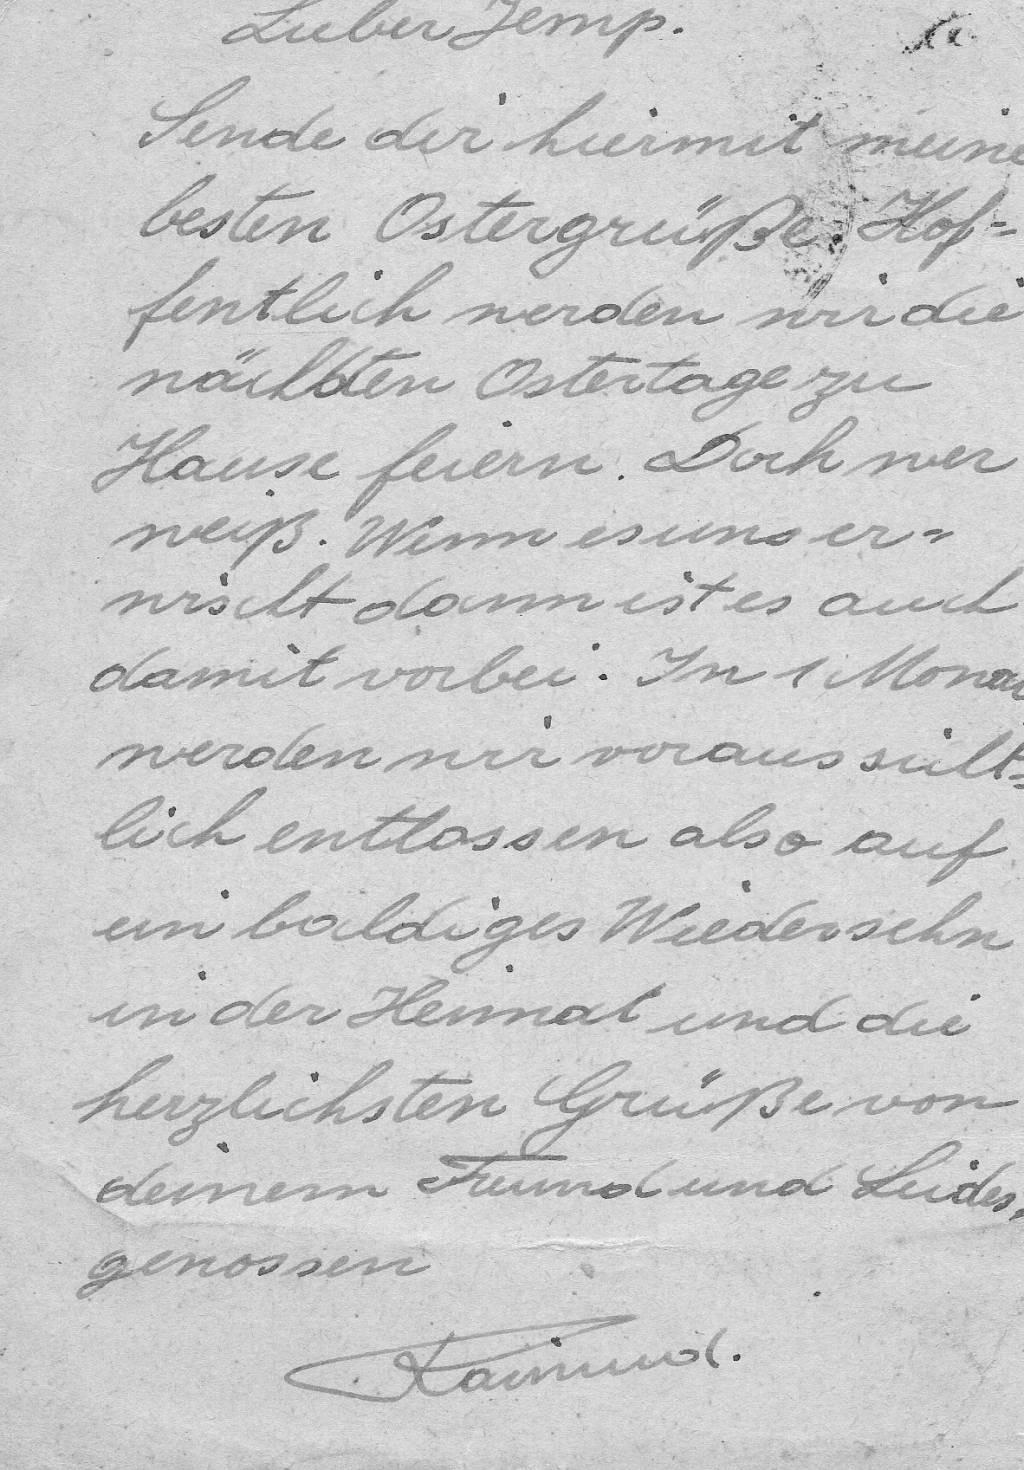 Lieber Jemp.
Sende dir hiermit meine
besten Ostergrüße. Hof=
fentlich werden wir die
nächsten Ostertage zu
Hause feiern. Doch wer
weiß. Wenn es uns er=
wischt dann ist es auch
damit vorbei. In 1 Monat
werden wir voraussicht=
lich entlassen also auf
ein baldiges Wiedersehn
in der Heimat und die
herzlichsten Grüße von
deinem Freund und Leides=
genossen
Raimund.